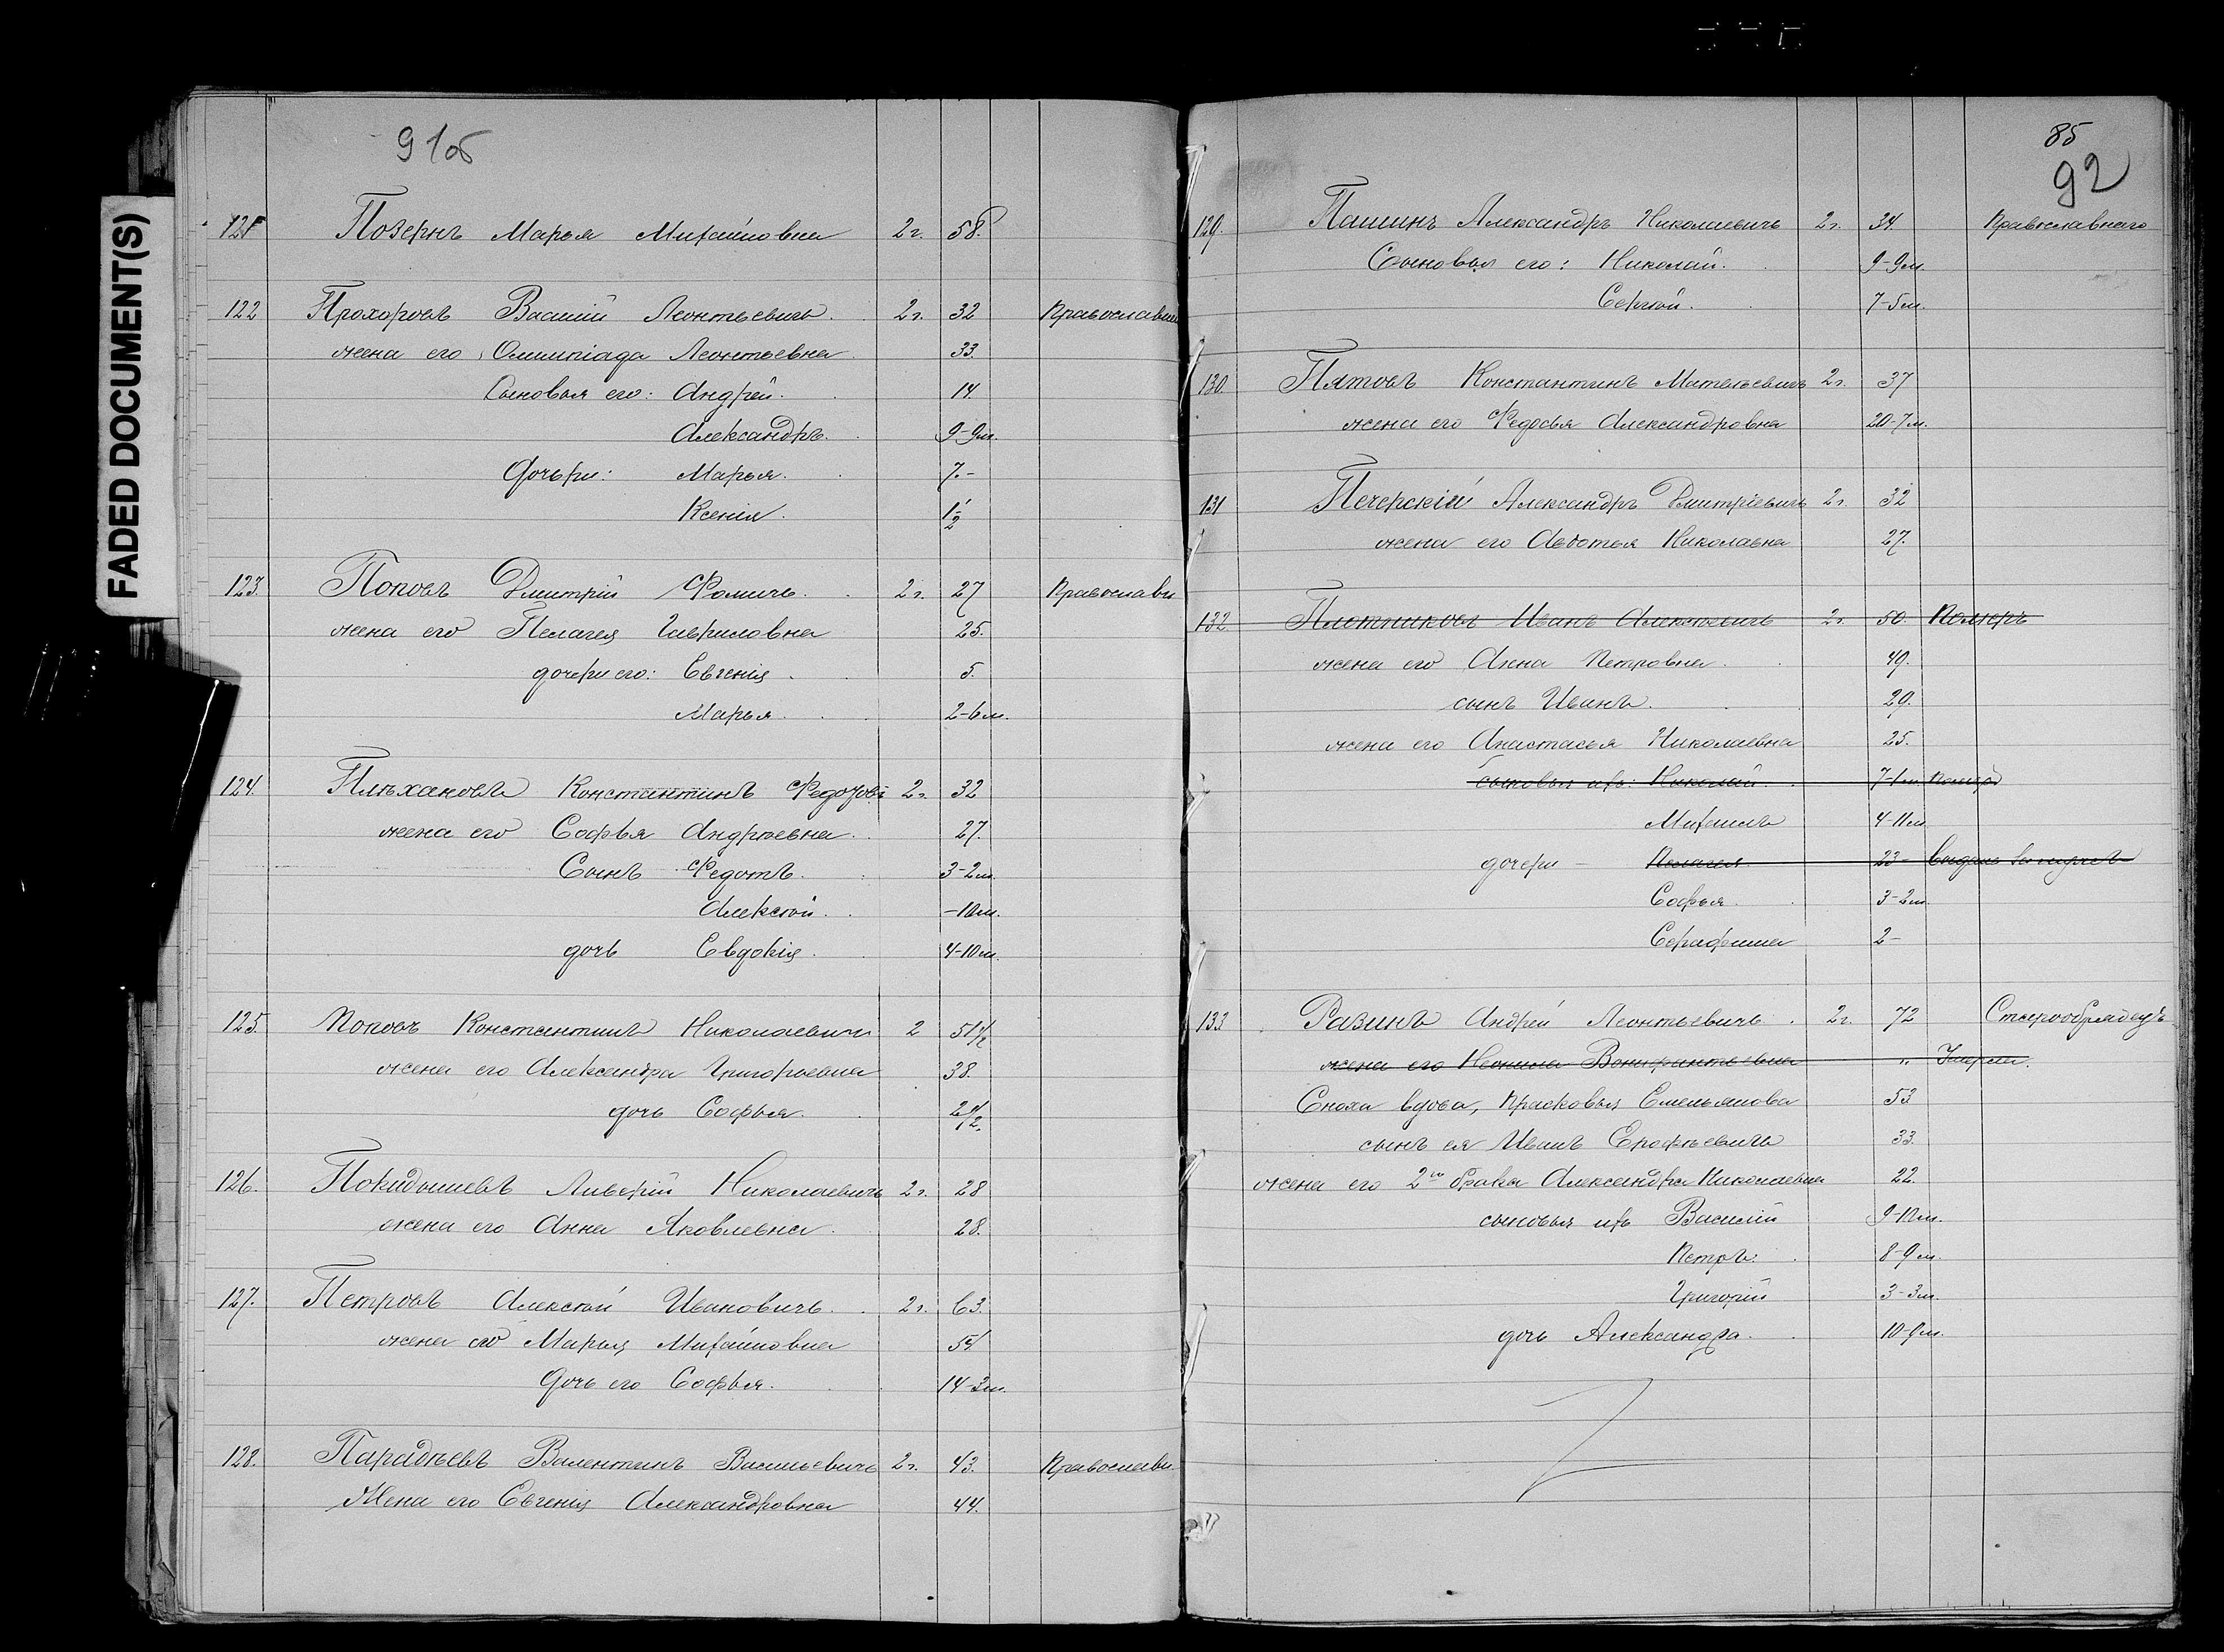 FADED DOCUMENT(S)
91об
121 Позернъ Марья Михайловна 2 г. 58.
122 Прохоровъ Василій Леонтьевичъ. 2 г. 32 Православн
жена его Олимпіада Леонтьевна 33.
Сыновья его: Андрей. 14.
Александръ. 9-9 м.
Дочери: Марья. 7.-
Ксенія. 1 1/2
123. Поповъ Дмитрій Фомичъ. 2 г. 27 Православн
жена его Пелагея Гавриловна 25.
дочери его: Евгенія 5.
Марья. 2-6 м.
124. Плѣхановъ Константинъ Федоров 2 г. 32
жена его Софья Андреевна. 27.
Сынъ Федотъ. 3-2 м.
Алексѣй. -10 м.
дочь Евдокія. 4-10 м.
125. Поповъ Константинъ Николаевичъ 2 51 1/2
жена его Александра Григорьевна 38.
дочь Софья. 2 1/2.
126. Покидышевъ Ливерій Николаевичъ 2 г. 28
жена его Анна Яковлевна. 28.
127. Петровъ Алексѣй Ивановичъ. 2 г. 63.
жена его Марья Михайловна 54
Дочь его Софья. 14-3 м.
128. Парадѣевъ Валентинъ Васильевичъ 2 г. 43. Православн.
Жена его Евгенія Александровна 44.
85
92
129. Пашинъ Александръ Николаевичъ 2 г. 34. Православнаго
Сыновья его: Николай. 9-9 м.
Сергѣй. 7-5 м.
130. Пятовъ Константинъ Матвѣевичъ 2 г. 37
жена его Федосья Александровна 20-7 м.
131 Печерскій Александръ Дмитріевичъ 2 г. 32
жена его Авдотья Николаевна 27.
132. Плетниковъ Иванъ Алексѣевичъ 2 г. 50. Померъ
жена его Анна Петровна. 49.
сынъ Иванъ. 29.
жена его Анастасья Николаевна 25.
сыновья ихъ: Николай. 7-1 м. померъ
Михаилъ 4-11 м
дочери - Пелагея 23-
Софья. 3-2 м.
Серафима 2-
133 Разинъ Андрей Леонтьевичъ. 2 г. 72 Старообрядецъ
жена его Неонила Вонифантьевна " Умерла.
Сноха вдова, Прасковья Емельянова 53
сынъ ея Иванъ Ерофѣевичъ 33.
жена его 2го брака Александра Николаевна 22.
сыновья ихъ Василій 9-10 м.
Петръ. 8-9 м.
Григорій 3-3 м.
дочь Александра. 10-9 м.